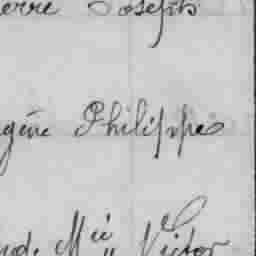 erre Joseph
gène Philippe
nd. Mii Victor